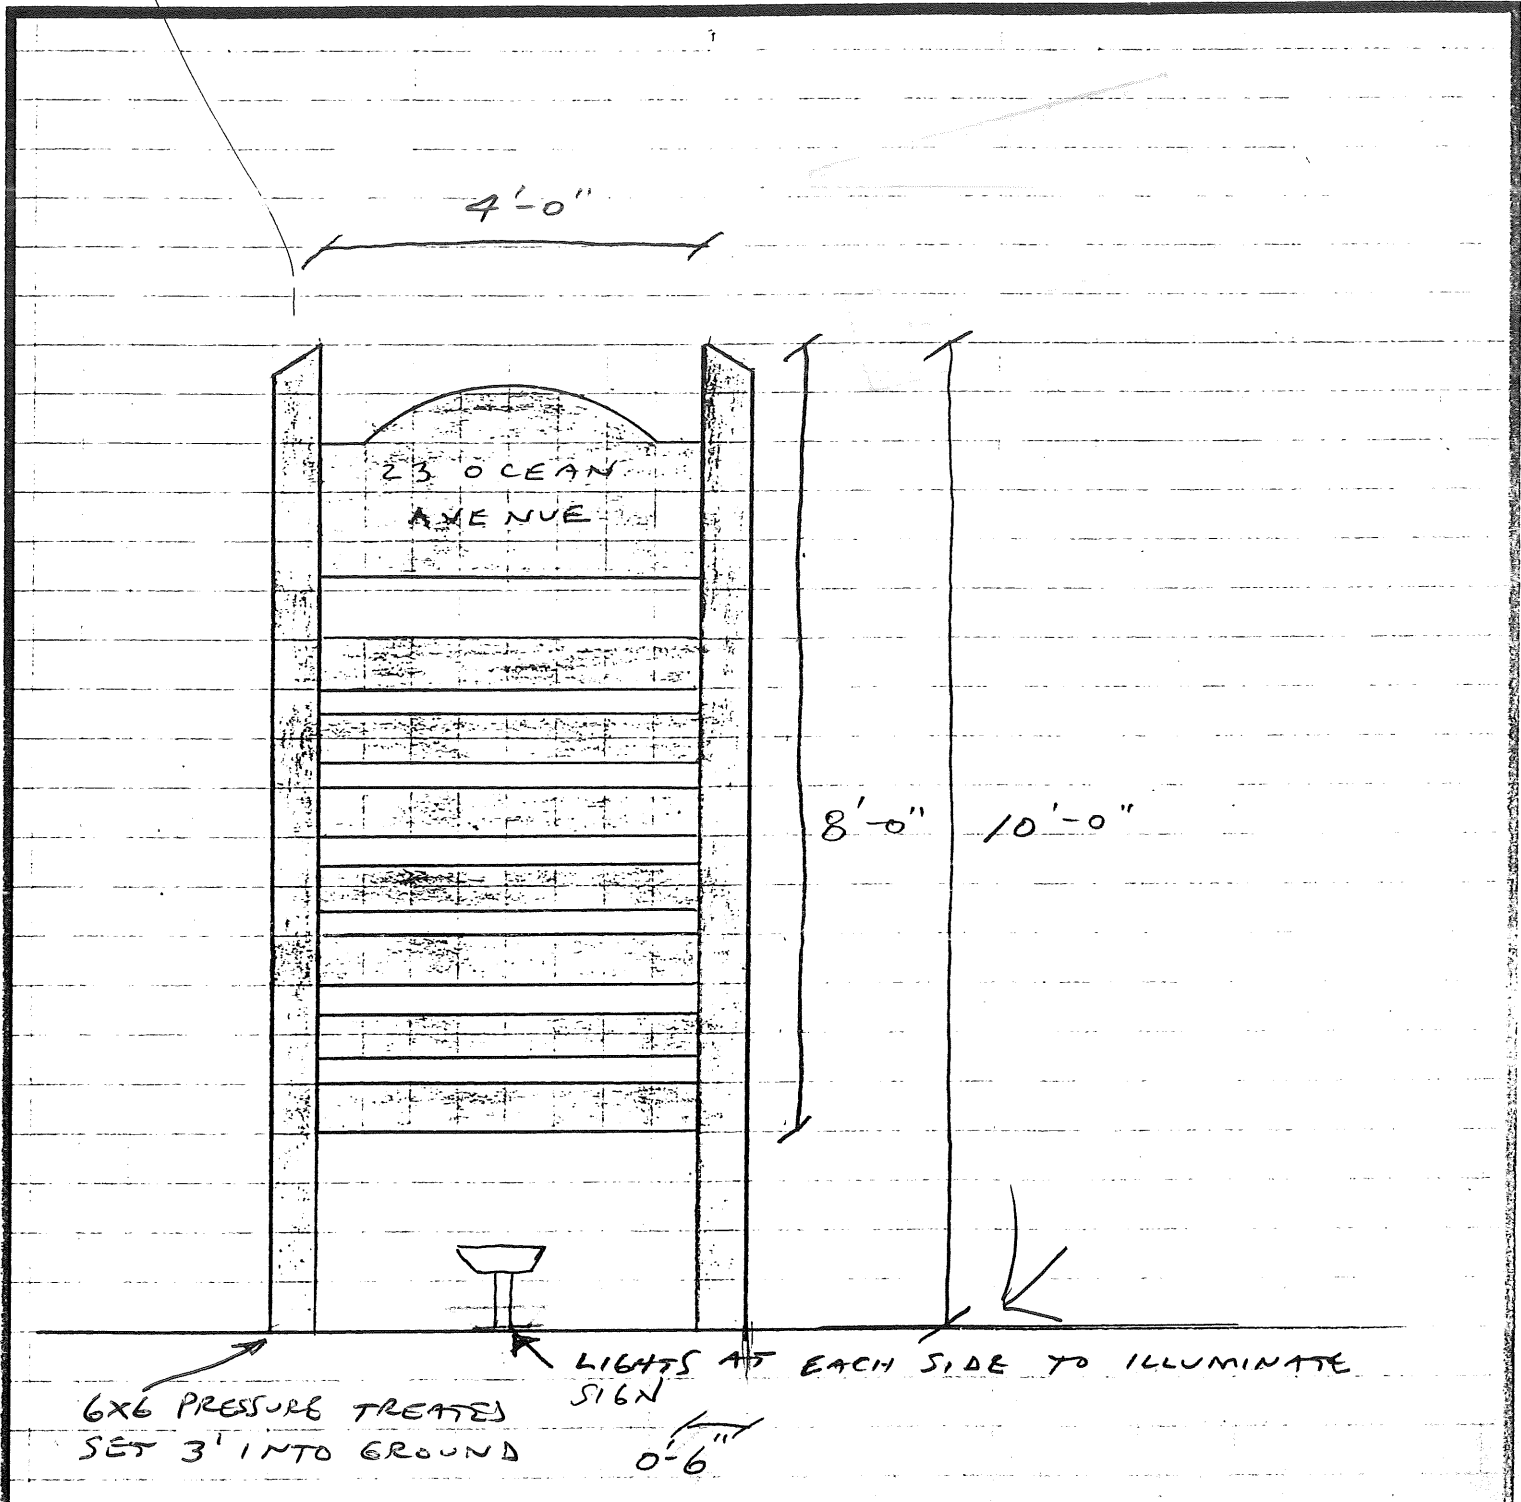 4'-0"
23 OCEAN
AVENUE
8'-0"
10'-0"
LIGHTS AT EACH SIDE TO ILLUMINATE
SIGN
6X6 PRESSURE TREATED
SET 3' INTO GROUND
0'-6"